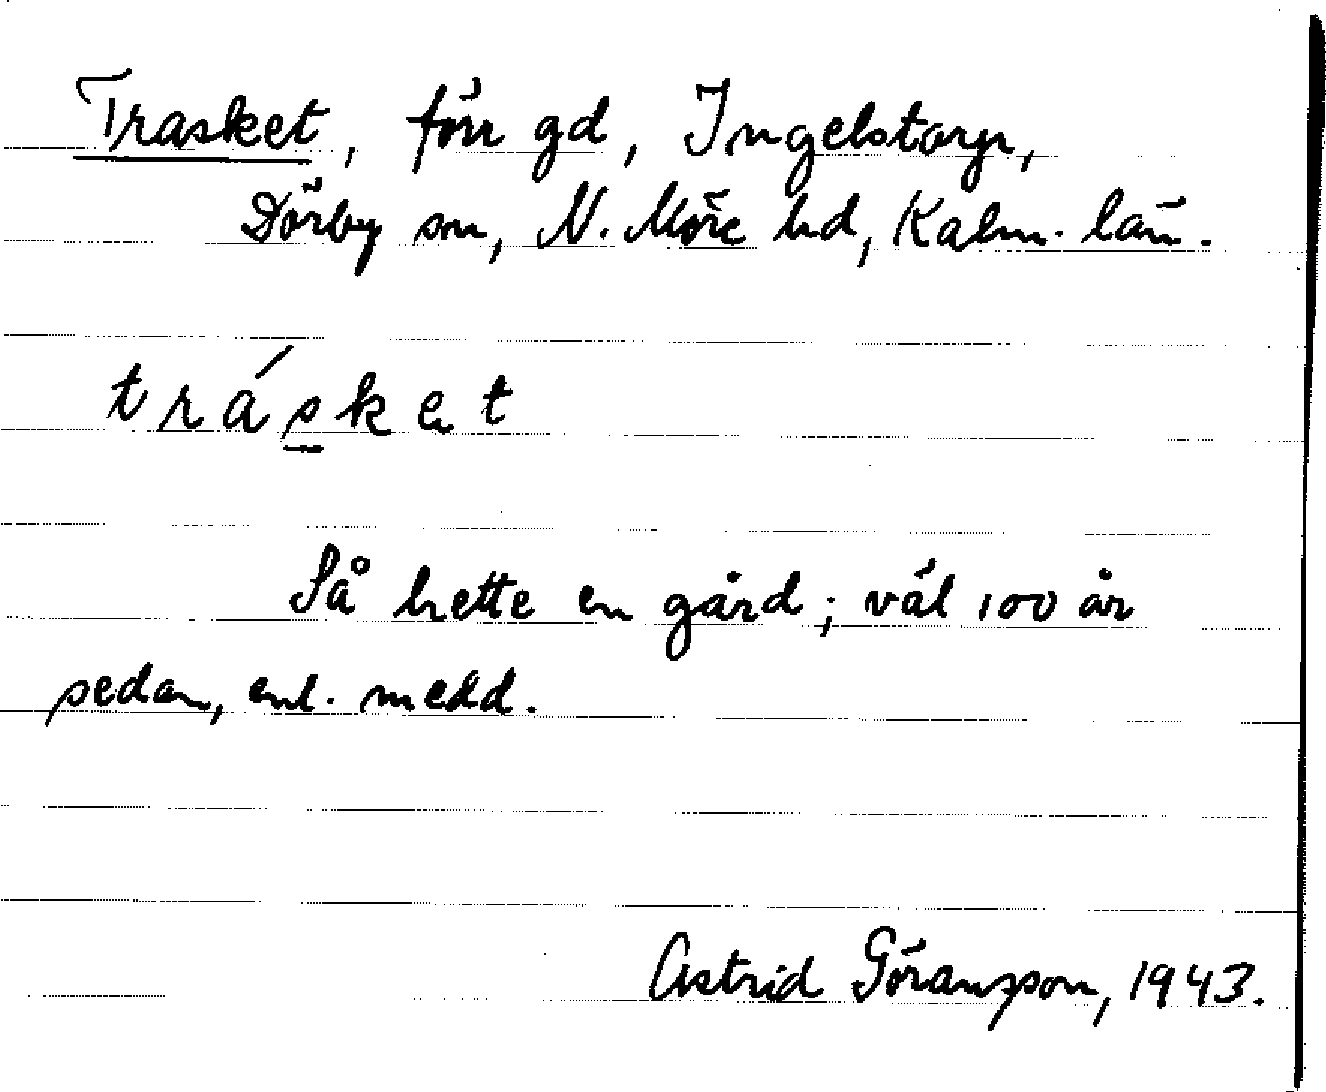 Trasket, förr gd, Ingelstorp,
Dörby sn, N. Möre hd, Kalm. län.
trásket
Så hette en gård; väl 100 år
sedan, enl. medd.
Astrid Göranzson, 1943.